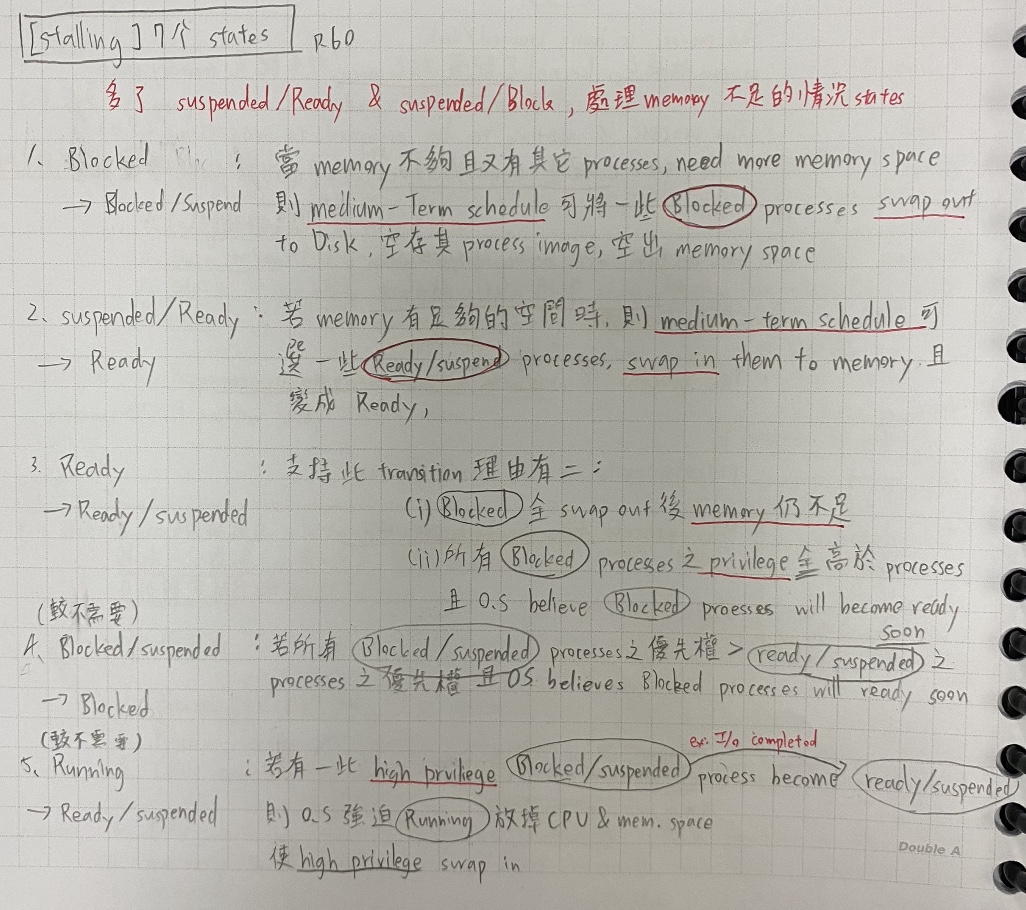 [stalling] 7个 states P.60
多了 suspended/Ready & suspended/Block, 處理 memory 不足的情況 states
1、Blocked : 當 memory 不夠且又有其它 processes, need more memory space
→ Blocked/Suspend 則 medium-Term schedule 可將一些 Blocked processes swap out
to Disk, 空存其 process image, 空出 memory space
2、suspended/Ready : 若 memory 有足夠的空間時, 則 medium-term schedule 可
→ Ready 選一些 Ready/suspend processes, swap in them to memory 且
變成 Ready,
3. Ready : 支持此 transition 理由有二:
→ Ready/suspended (i) Blocked 全 swap out 後 memory 仍不足
(ii) 所有 Blocked processes 之 privilege 全高於 processes
且 O.S believe Blocked proesses will become ready
soon
(較不需要)
4、Blocked/suspended : 若所有 Blocked/suspended processes 之優先權 > ready/suspended 之
→ Blocked processes 之優先權 且 OS believes Blocked processes will ready soon
(較不需要)
ex: I/O completed
5、Running : 若有一些 high prviliege Blocked/suspended process become ready/suspended
→ Ready/suspended 則 O.S 強迫 Running 放掉 CPU & mem. space
使 high privilege swap in
Double A